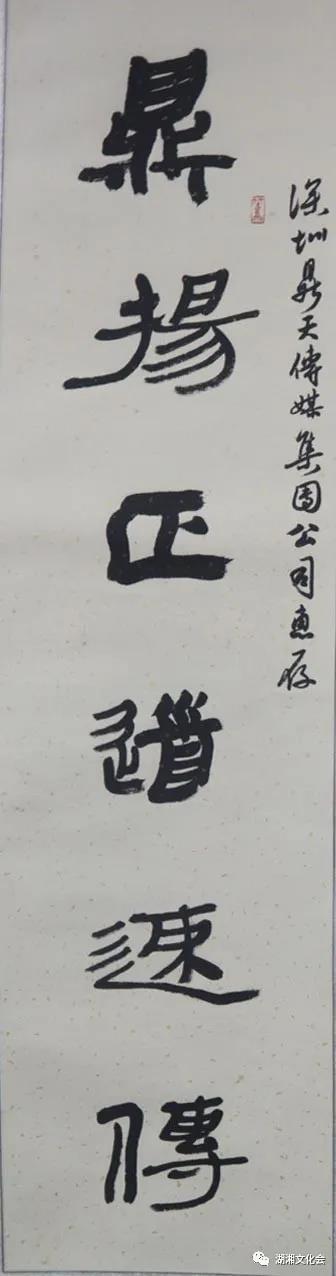 深圳鼎天傳媒集團公司惠存
鼎揚正道速傳
湖湘文化会